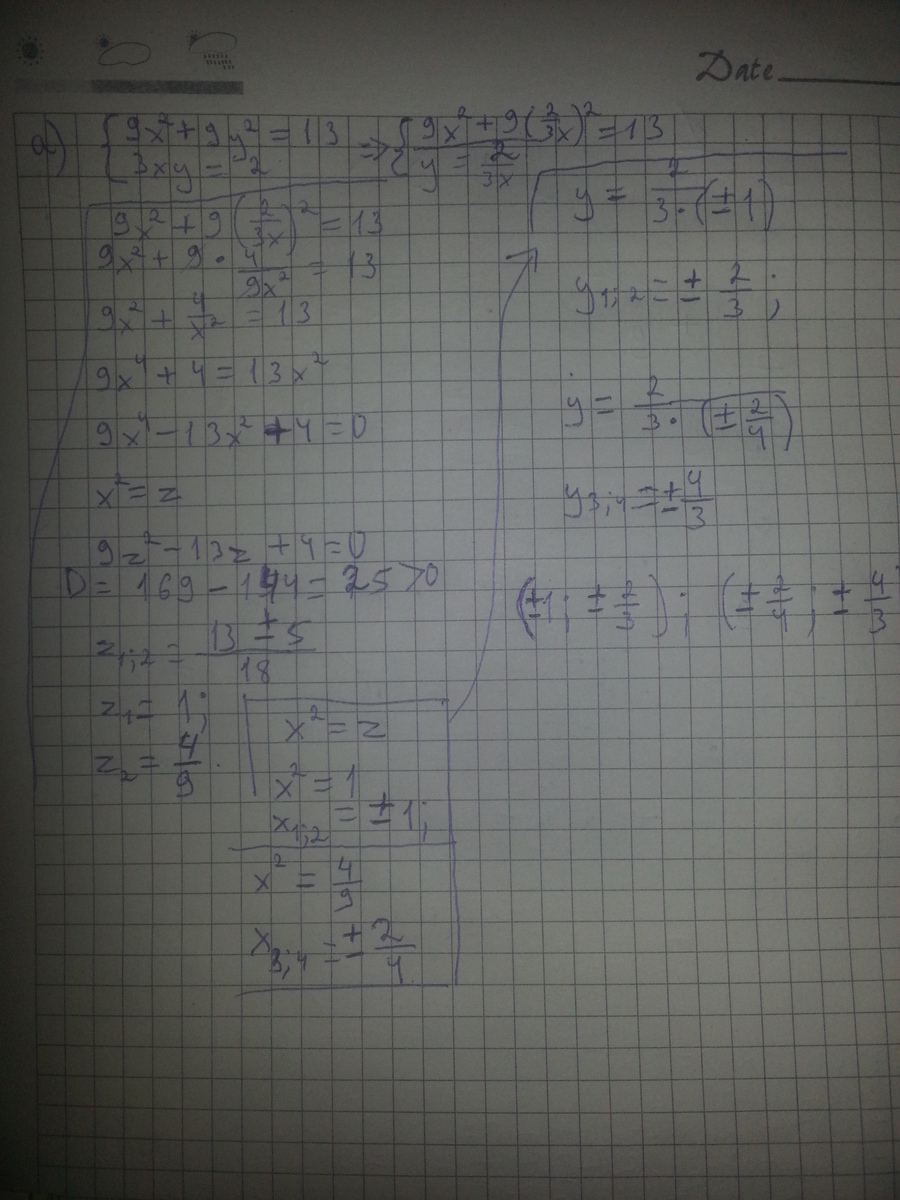 Date
а) { 9x² + 9y² = 13 => { 9x² + 9(2/3x)² = 13
3xy = 2 y = 2/3x
9x² + 9(2/3x)² = 13
9x² + 9 · 4/9x² = 13
9x² + 4/x² = 13
9x⁴ + 4 = 13x²
9x⁴ - 13x² + 4 = 0
x² = z
9z² - 13z + 4 = 0
D = 169 - 144 = 25 > 0
z₁;₂ = 13 ± 5 / 18
z₁ = 1;
z₂ = 4/9.
x² = z
x² = 1
x₁;₂ = ± 1;
x² = 4/9
x₃;₄ = ± 2/4
y = 2 / 3·(± 1)
y₁;₂ = ± 2/3;
y = 2 / 3·(± 2/4)
y₃;₄ = ± 4/3
(±1; ± 2/3); (± 2/4; ± 4/3